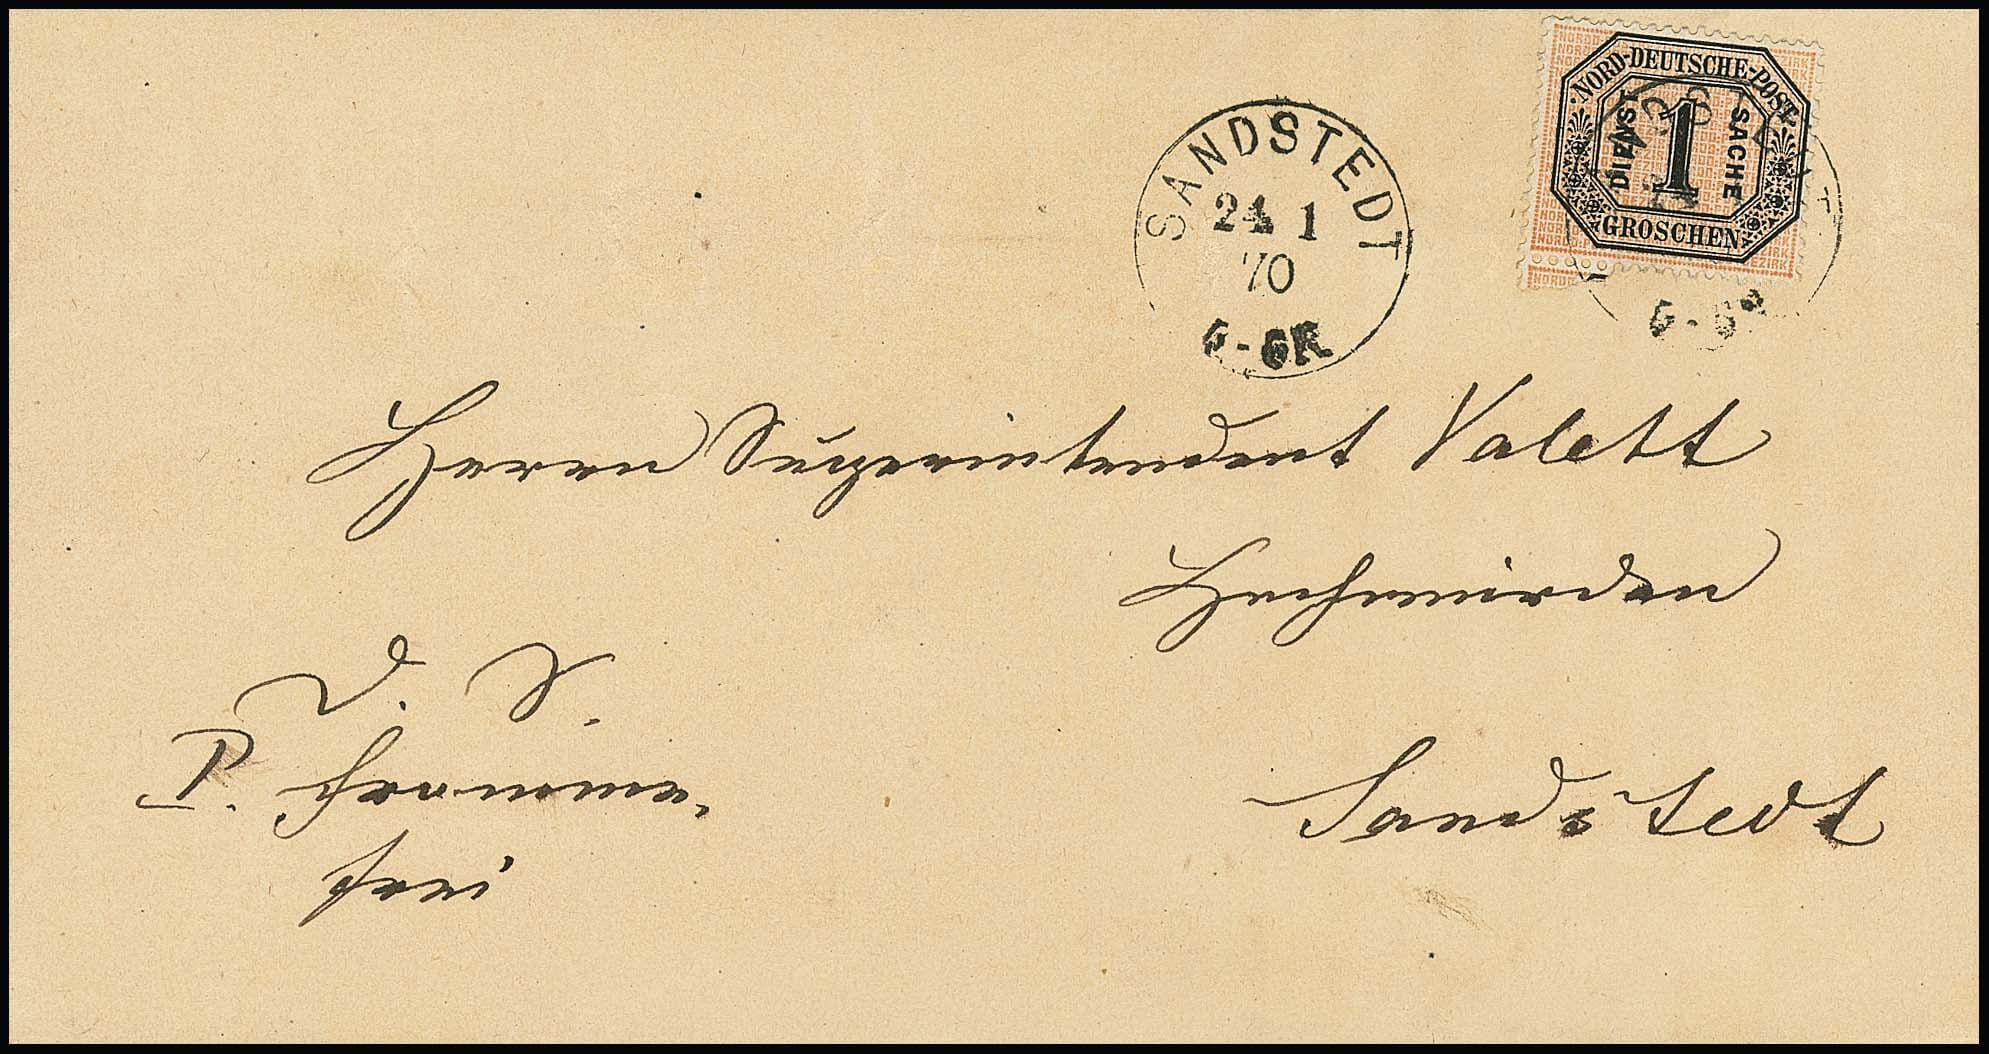 NORD-DEUTSCHE-POST
DIENST 1 SACHE
GROSCHEN
SANDSTEDT
24 1
70
5-6N
Herrn Superintendent Valett
Hochwürden
D. S.
P. fromme.
frei
Sandstedt